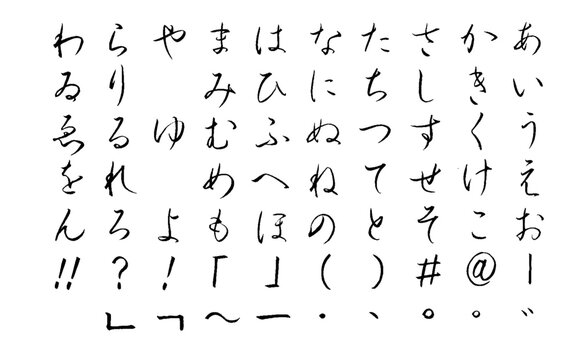 あいうえお｜゛
かきくけこ@゜
さしすせそ#。
たちつてと)、
なにぬねの(・
はひふへほ」ー
まみむめも「〜
やゆよ!﹁
らりるれろ?﹂
わゐゑをん!!